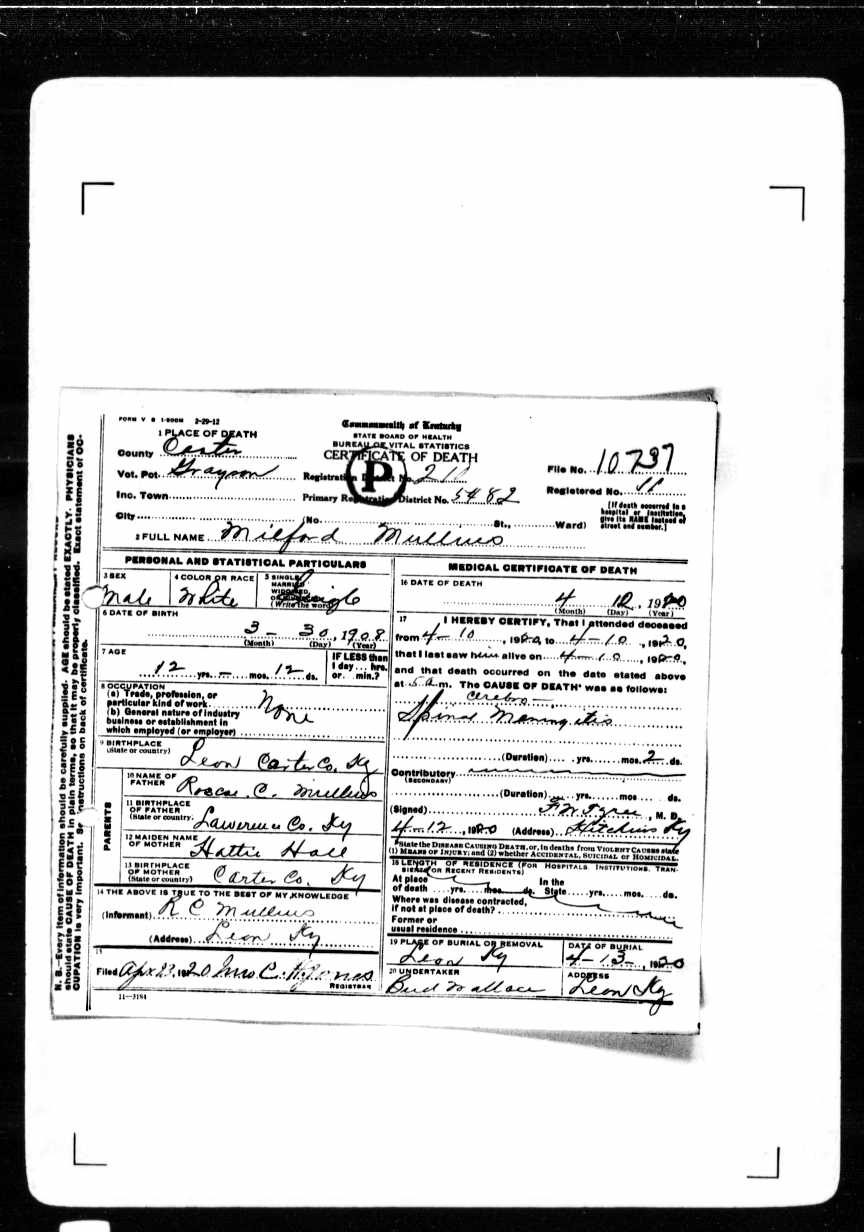 FORM V S 1-500M 2-29-12
1 PLACE OF DEATH
County Carter
Vot. Pct. Grayson
Inc. Town
City
Commonwealth of Kentucky
STATE BOARD OF HEALTH
BUREAU OF VITAL STATISTICS
CERTIFICATE OF DEATH
P
Registration District No. 210
Primary Registration District No. 5482
File No. 10737
Registered No. 11
(No. St., Ward)
[If death occurred in a
hospital or institution,
give its NAME instead of
street and number.]
2 FULL NAME Milford Mullins
PERSONAL AND STATISTICAL PARTICULARS
3 SEX
Male
4 COLOR OR RACE
White
5 SINGLE
MARRIED
WIDOWED
(Write the word)
Single
6 DATE OF BIRTH
3- 30, 1908
(Month) (Day) (Year)
7 AGE
12 yrs. - mos. 12 ds.
IF LESS than
1 day... hrs.
or... min.?
8 OCCUPATION
(a) Trade, profession, or
particular kind of work
(b) General nature of industry
business or establishment in
which employed (or employer)
None
9 BIRTHPLACE
(State or country)
Leon Carter Co. Ky
PARENTS
10 NAME OF
FATHER
Roscoe C. Mullins
11 BIRTHPLACE
OF FATHER
(State or country)
Lawerence Co. Ky
12 MAIDEN NAME
OF MOTHER
Hattie Hall
13 BIRTHPLACE
OF MOTHER
(State or country)
Carter Co. Ky
14 THE ABOVE IS TRUE TO THE BEST OF MY KNOWLEDGE
(Informant) R C Mullins
(Address) Leon Ky
15
Filed Apr 23, 1920 Mrs C. H. Jones
REGISTRAR
11-3184
MEDICAL CERTIFICATE OF DEATH
16 DATE OF DEATH
4 12, 1920
(Month) (Day) (Year)
17 I HEREBY CERTIFY, That I attended deceased
from 4-10, 1920, to 4-10, 1920,
that I last saw him alive on 4-10, 1920,
and that death occurred on the date stated above
at 5 a.m. The CAUSE OF DEATH* was as follows:
cerebro-
Spinal Maningetis
(Duration) yrs. mos. 2 ds.
Contributory
(SECONDARY)
(Duration) yrs. mos. ds.
(Signed) F W Tyree, M. D.
4-12, 1920 (Address) Hitchins Ky
*State the DISEASE CAUSING DEATH, or, in deaths from VIOLENT CAUSES state
(1) MEANS OF INJURY; and (2) whether ACCIDENTAL, SUICIDAL or HOMICIDAL.
18 LENGTH OF RESIDENCE (FOR HOSPITALS, INSTITUTIONS, TRAN-
SIENTS OR RECENT RESIDENTS)
At place In the
of death yrs. mos. ds. State yrs. mos. ds.
Where was disease contracted,
if not at place of death?
Former or
usual residence
19 PLACE OF BURIAL OR REMOVAL
Leon Ky
DATE OF BURIAL
4-13-, 1920
20 UNDERTAKER
Bud Wallace
ADDRESS
Leon Ky
N. B.—Every item of information should be carefully supplied. AGE should be stated EXACTLY. PHYSICIANS
should state CAUSE OF DEATH in plain terms, so that it may be properly classified. Exact statement of OC-
CUPATION is very important. See instructions on back of certificate.